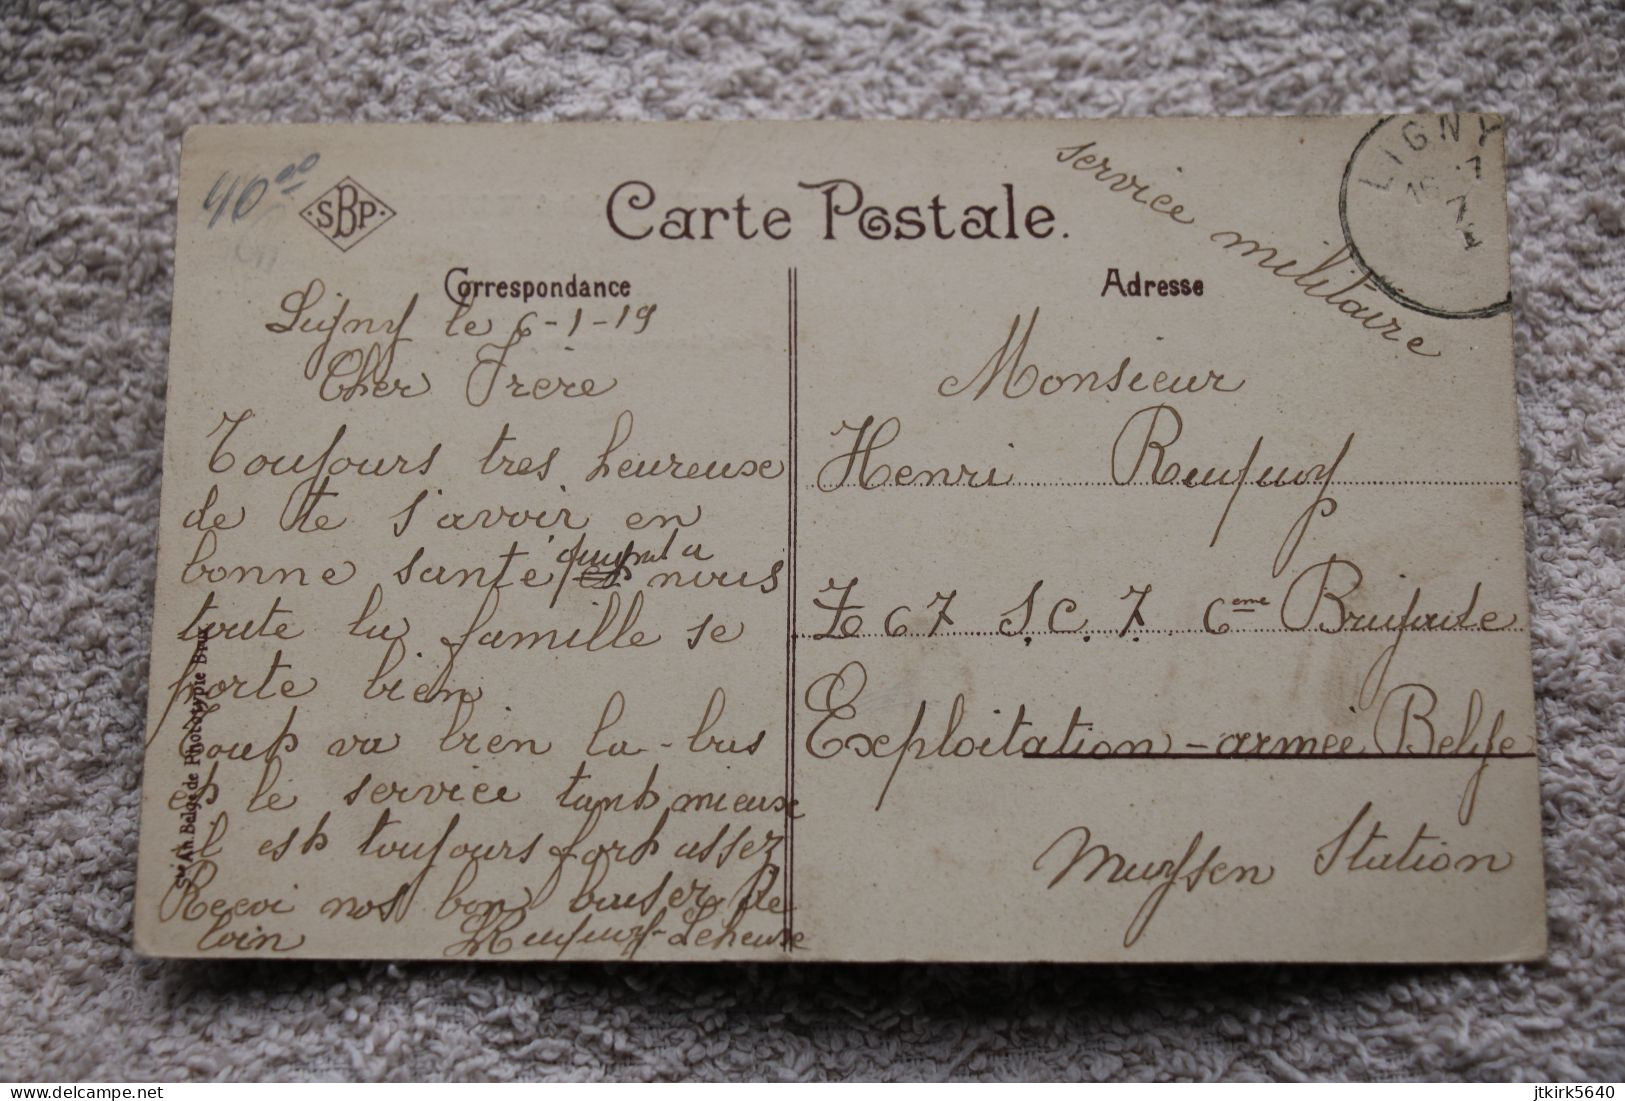 40.00
SBP
Carte Postale.
service militaire
LIGNY
Correspondance
Adresse
Ligny le 6-1-19
Cher Frère
Toujours tres heureuse
de te s'avoir en
bonne santé quand a nous
toute la famille se
porte bien
Tout va bien la-bas
et le service tant mieux
il est toujours fort assez
Recoi nos bon baiser de
loin
Monsieur
Henri
Z 67 S.C. 7. 6eme
Exploitation - armée Belge
Muysen Station
Sté An. Belge de Phototypie Brux
delcampe.net
jtkirk5640